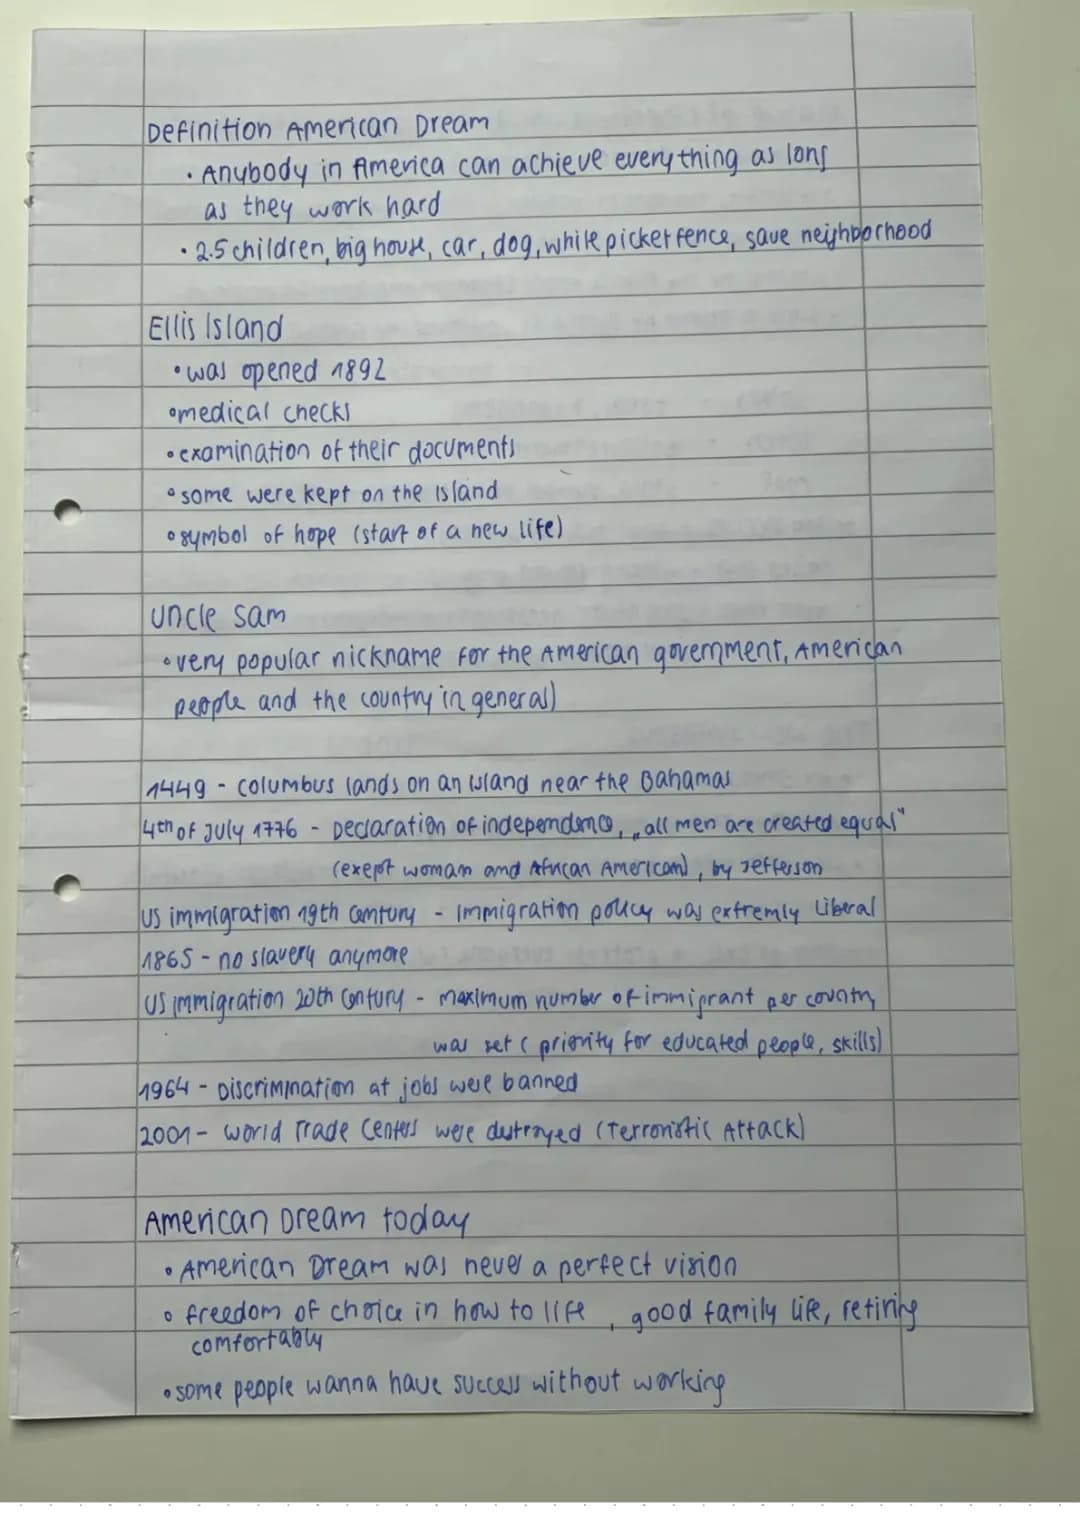 Definition American Dream
• Anybody in America can achieve everything as long
as they work hard
• 2.5 children, big house, car, dog, white picket fence, save neighborhood
Ellis Island
• was opened 1892
• medical checks
• examination of their documents
• some were kept on the island
• symbol of hope (start of a new life)
Uncle Sam
• very popular nickname for the American government, American
people and the country in general)
1449 - Columbus lands on an island near the Bahamas
4th of July 1776 - Declaration of independence, „all men are created equal"
(exept woman and African American), by Jefferson
US immigration 19th Century - Immigration policy was extremly liberal
1865 - no slavery anymore
US immigration 20th Century - maximum number of immigrant per country
was set ( priority for educated people, skills)
1964 - Discrimination at jobs were banned
2001 - World Trade Centers were destroyed (Terroristic Attack)
American Dream today
• American Dream was never a perfect vision
• freedom of choice in how to life , good family life, retiring
comfortably
• some people wanna have success without working